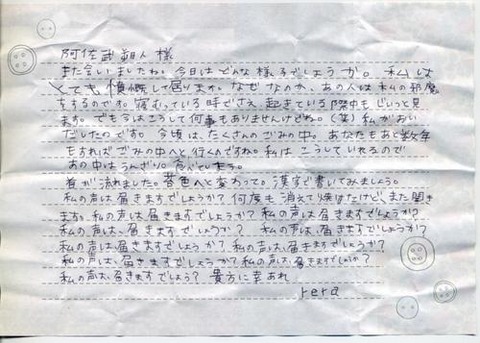 阿佐武朔人様
また会いましたね。今日はどんな様子でしょうか。私は
とても憤慨して居ります。なぜなのか、あの人は私の邪魔
をするのです。寝むっている時でさえ、起きている際中も、じいっと見
ます。でも今はこうして何事もありませんけどね。(笑)私がおい
だしたのです。今頃は、たくさんのごみの中。あなたもあと数年
もすればごみの中へと行くんですわ。私はこうしていれるので
あの中はうんざり。
が流れました。苔色へと変わって。漢字で書いてみましょう。
私の声は届きますでしょうか?何度も消えて
ますか。私の声は届きますでしょうか?私の声は、届きますでしょうか?
私の声は、届きますでしょうか?私の声は、届きますでしょうか?
私の声は届きますでしょうか?私の声は、届きますでしょうか?
私の声は、届きますでしょうか?私の声は、届きますでしょうか?
私の声は、届きますでしょう?貴方に幸あれ
rera